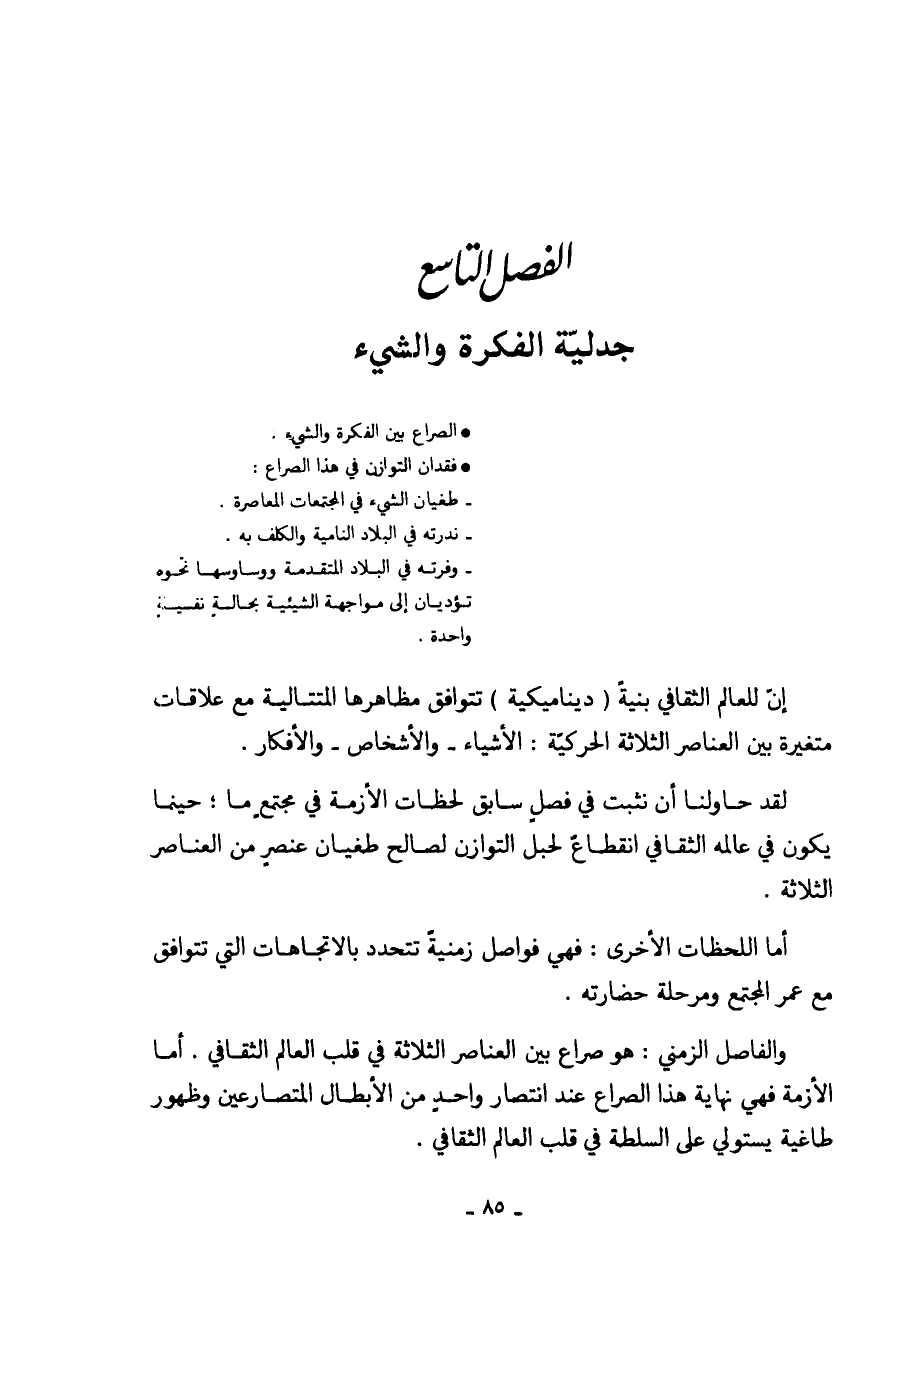 الفصل التاسع
جدليّة الفكرة والشيء
● الصراع بين الفكرة والشيء .
● فقدان التوازن في هذا الصراع :
ـ طغيان الشيء في المجتمعات المعاصرة .
ـ ندرته في البلاد النامية والكلف به .
ـ وفرته في البلاد المتقدمة ووساوسها نحوه
تؤديان إلى مواجهة الشيئية بحالةٍ نفسيةٍ
واحدة .
إنّ للعالم الثقافي بنيةً ( ديناميكية ) تتوافق مظاهرها المتتالية مع علاقات
متغيرة بين العناصر الثلاثة الحركيّة : الأشياء ـ والأشخاص ـ والأفكار .
لقد حاولنا أن نثبت في فصلٍ سابق لحظات الأزمة في مجتمعٍ ما ؛ حينما
يكون في عالمه الثقافي انقطاعٌ لحبل التوازن لصالح طغيان عنصرٍ من العناصر
الثلاثة .
أما اللحظات الأخرى : فهي فواصل زمنيةً تتحدد بالاتجاهات التي تتوافق
مع عمر المجتمع ومرحلة حضارته .
والفاصل الزمني : هو صراع بين العناصر الثلاثة في قلب العالم الثقافي . أما
الأزمة فهي نهاية هذا الصراع عند انتصار واحدٍ من الأبطال المتصارعين وظهور
طاغية يستولي على السلطة في قلب العالم الثقافي .
ـ ٨٥ ـ